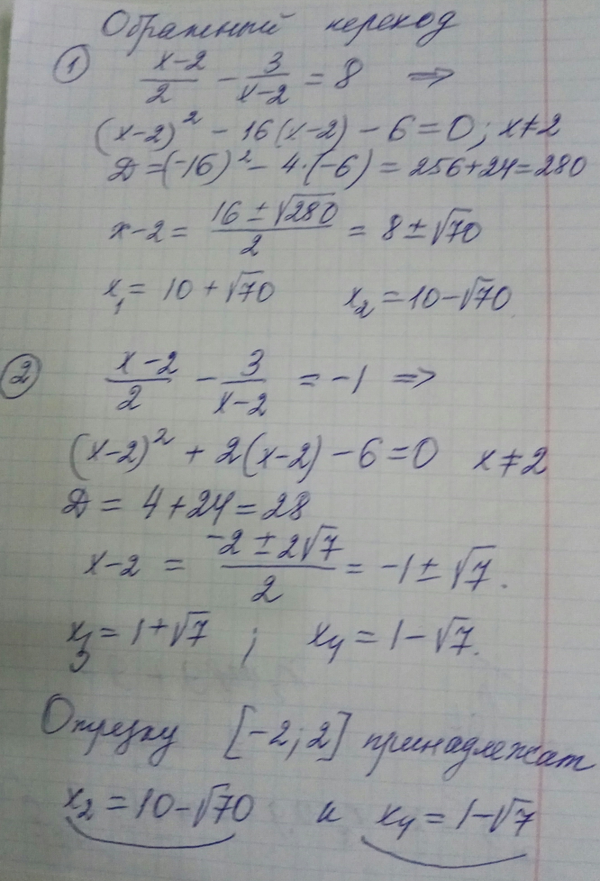 Обратный переход
① (x-2)/2 - 3/(x-2) = 8 ⇒
(x-2)² - 16(x-2) - 6 = 0; x≠2
D = (-16)² - 4·(-6) = 256+24 = 280
x-2 = (16 ± √280)/2 = 8 ± √70
x₁ = 10 + √70 x₂ = 10 - √70
② (x-2)/2 - 3/(x-2) = -1 ⇒
(x-2)² + 2(x-2) - 6 = 0 x≠2
D = 4 + 24 = 28
x-2 = (-2 ± 2√7)/2 = -1 ± √7.
x₃ = 1 + √7 ; x₄ = 1 - √7.
Отрезку [-2; 2] принадлежат
x₂ = 10 - √70 и x₄ = 1 - √7